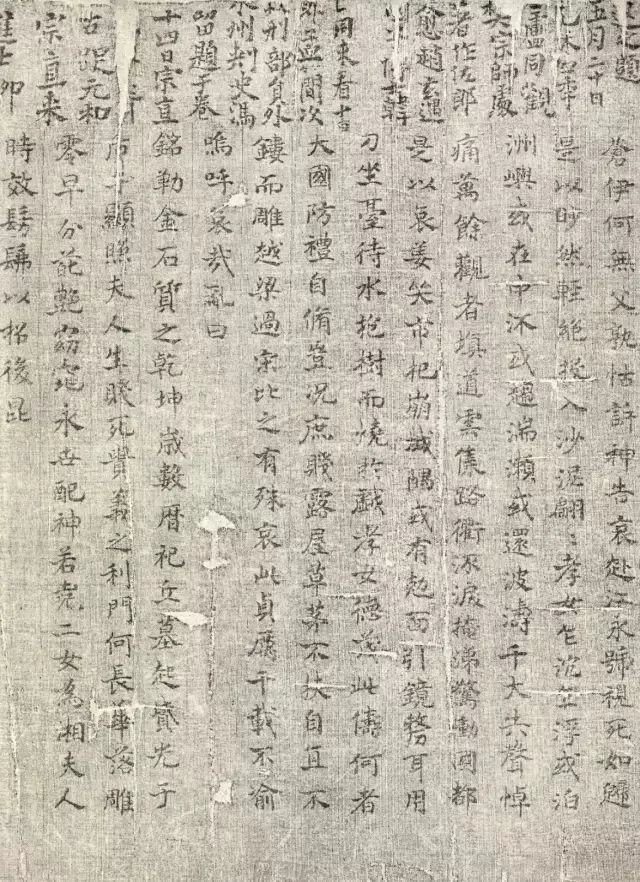 五月二十日
盧同觀
樊宗師處
著作佐郎
愈趙玄遇
韓
同来看十
間次
刑部員外
州刺史馮
留題于卷
十四日宗直
元和
宗直来
蒼伊何無父孰怙訴神告哀赴江永號視死如歸
是以眇然輕絕投入沙泥翩〻孝女乍沉乍浮或泊
洲嶼或在中流或趨湍瀨或還波濤千夫共聲悼
痛萬餘觀者填道雲集路衢泣淚掩涕驚動國都
是以哀姜哭市杞崩城隅或有尅面引鏡剺耳用
刀坐臺待水抱樹而燒於戲孝女德茂此儔何者
大國防禮自脩豈況庶賤露屋草茅不扶自直不
鏤而雕越梁過宋比之有殊哀此貞厲千載不渝
嗚呼哀哉亂曰
銘勒金石質之乾坤歲數曆祀丘墓起墳光于
后土顯照夫人生賤死貴義之利門何長華落雕
零早分葩艷窈窕永世配神若堯二女為湘夫人
時效髣髴以招後昆